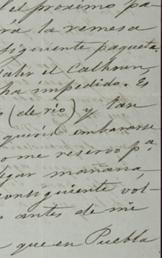 el proximo pa
ra la remesa
siguiente paquete
Calhoun
ha impedido. Es
(de rio) y tan
embarcarse
me reservo pa
mañana,
consiguiente vol
antes de mi
que en Puebla